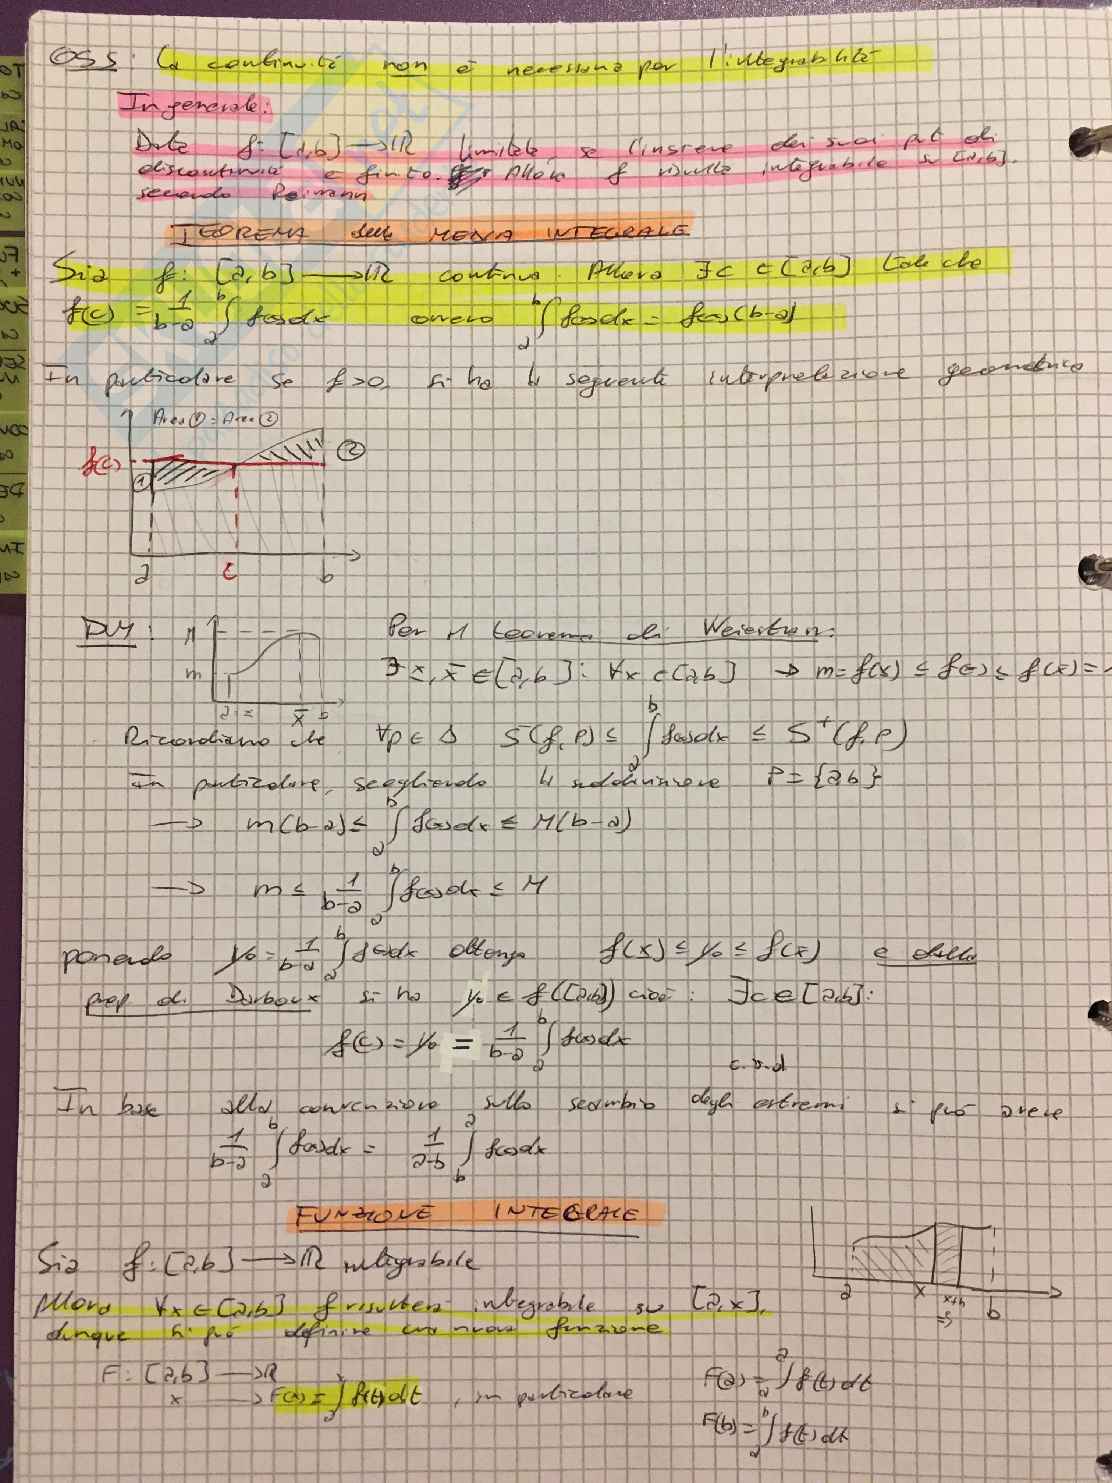 OSS: La continuità non è necessaria per l'integrabilità
In generale:
Data f: [a,b] → ℝ limitata, se l'insieme dei suoi pti di
discontinuità è finito. Allora f risulta integrabile su [a,b].
secondo Reimann
TEOREMA della MEDIA INTEGRALE
Sia f: [a,b] → ℝ continua. Allora ∃ c ∈ [a,b] tale che
f(c) = 1/(b-a) ∫_a^b f(x)dx ovvero ∫_a^b f(x)dx = f(c)(b-a)
In particolare se f>0, si ha la seguente interpretazione geometrica
Area ① = Area ②
f(c) ① ②
a c b
DIM: M m a x x̄ b
Per il teorema di Weierstrass:
∃ x, x̄ ∈ [a,b]: ∀x ∈ [a,b] → m = f(x) ≤ f(x) ≤ f(x̄) =
Ricordiamo che ∀p ∈ Δ S⁻(f,P) ≤ ∫_a^b f(x)dx ≤ S⁺(f,P)
In particolare, scegliendo la suddivisione P = {a,b}
→ m(b-a) ≤ ∫_a^b f(x)dx ≤ M(b-a)
→ m ≤ 1/(b-a) ∫_a^b f(x)dx ≤ M
ponendo y₀ = 1/(b-a) ∫_a^b f(x)dx ottengo f(x) ≤ y₀ ≤ f(x̄) e dalla
prop di Darboux si ha y₀ ∈ f([a,b]) cioè: ∃c ∈ [a,b]:
f(c) = y₀ = 1/(b-a) ∫_a^b f(x)dx
c.v.d
In base alla convenzione sullo scambio degli estremi si può avere
1/(b-a) ∫_a^b f(x)dx = 1/(a-b) ∫_b^a f(x)dx
FUNZIONE INTEGRALE
Sia f: [a,b] → ℝ integrabile
a x x+h b
Allora ∀x ∈ [a,b] f risulterà integrabile su [a,x],
dunque si può definire una nuova funzione
F: [a,b] → ℝ
x → F(x) = ∫_a^x f(t)dt, in particolare
F(a) = ∫_a^a f(t)dt
F(b) = ∫_a^b f(t)dt